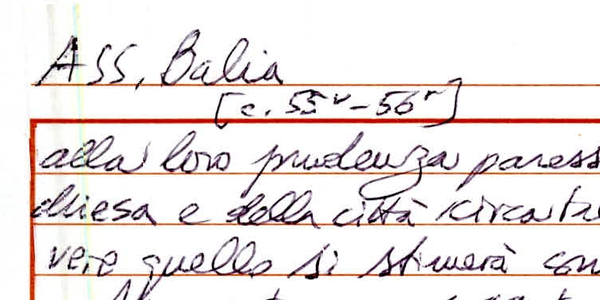 ASS, Balia
[c. 55v - 56r]
alla loro prudenza paress
chiesa e della città circa tre
vere quello si stimerà con